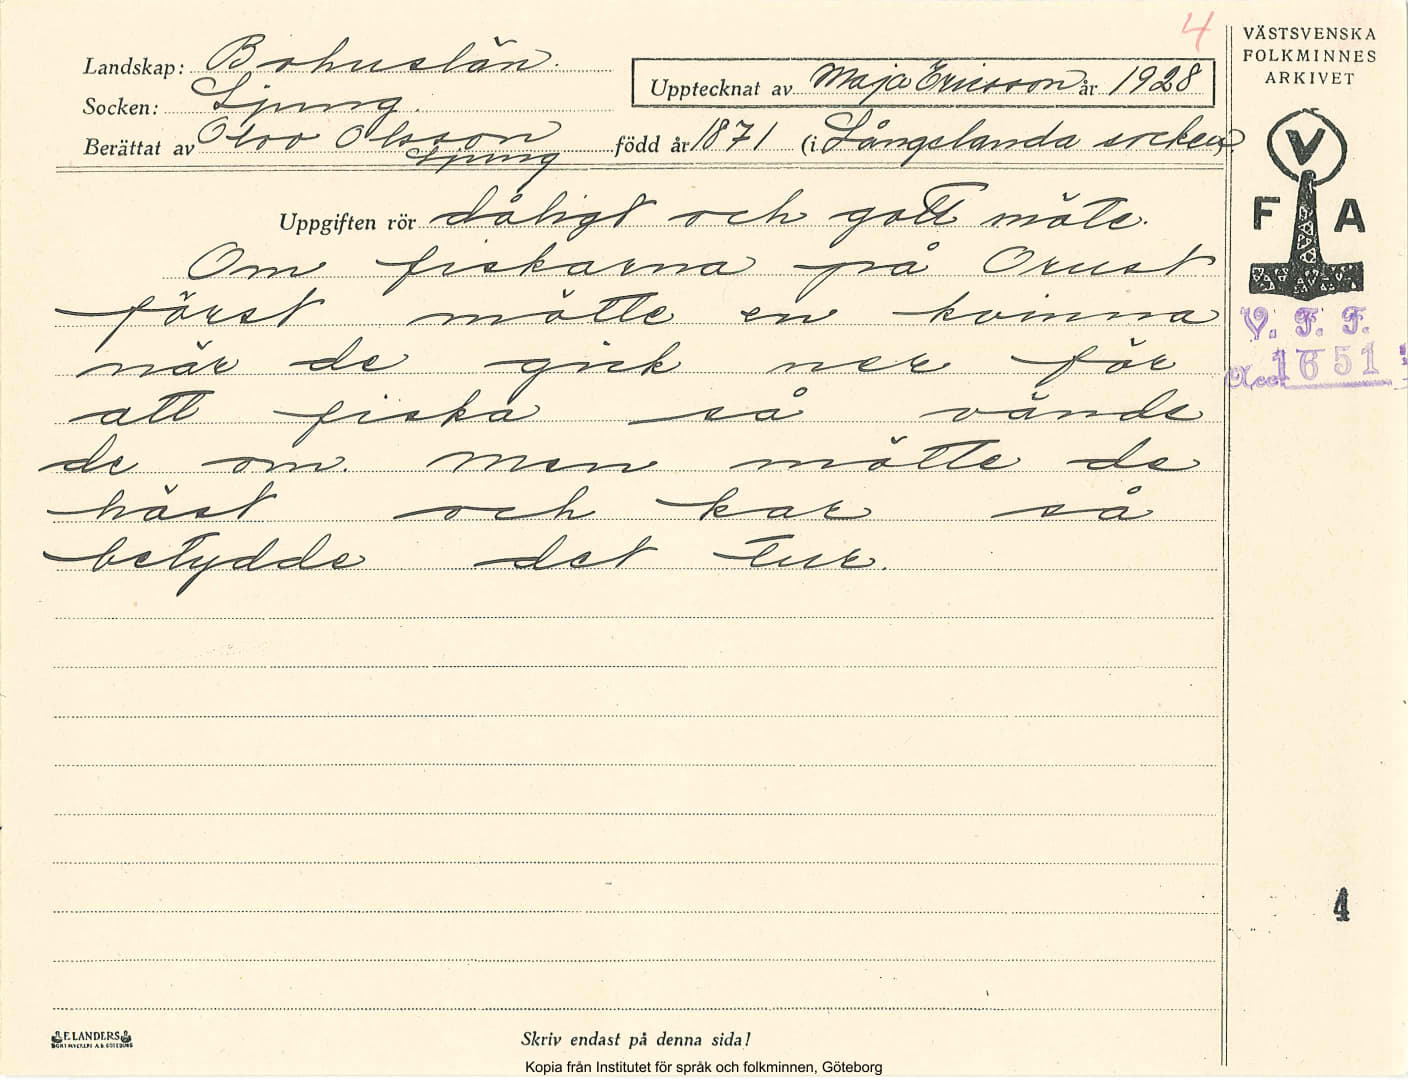 4
VÄSTSVENSKA
FOLKMINNES
ARKIVET
Landskap: Bohuslän.
Upptecknat av Maja Ericsson år 1928
Socken: Ljung.
Berättat av Olov Olsson född år 1871 (i Långelanda socken)
Ljung
V
F A
Uppgiften rör dåligt och gott möte.
Om fiskarna på Orust
först mötte en kvinna
när de gick ner för
att fiska så vände
de om. Men mötte de
häst och kar så
betydde det tur.
V. F. F.
Acc. 1651
4
ELANDERS
BOKTRYCKERI A.B. GÖTEBORG
Skriv endast på denna sida!
Kopia från Institutet för språk och folkminnen, Göteborg